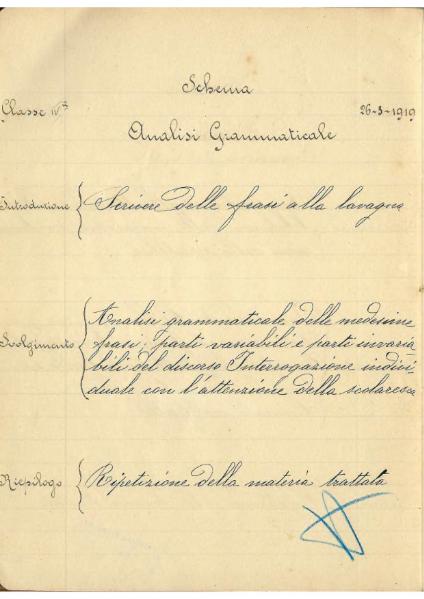 Schema
Classe IV.ª 26-3-1919
Analisi Grammaticale
Introduzione { Scrivere delle frasi alla lavagna
Analisi grammaticale delle medesime
Svolgimento { frasi; parti variabili e parti invaria=
bili del discorso Interrogazione indivi=
duale con l'attenzione della scolaresca
Riepilogo { Ripetizione della materia trattata